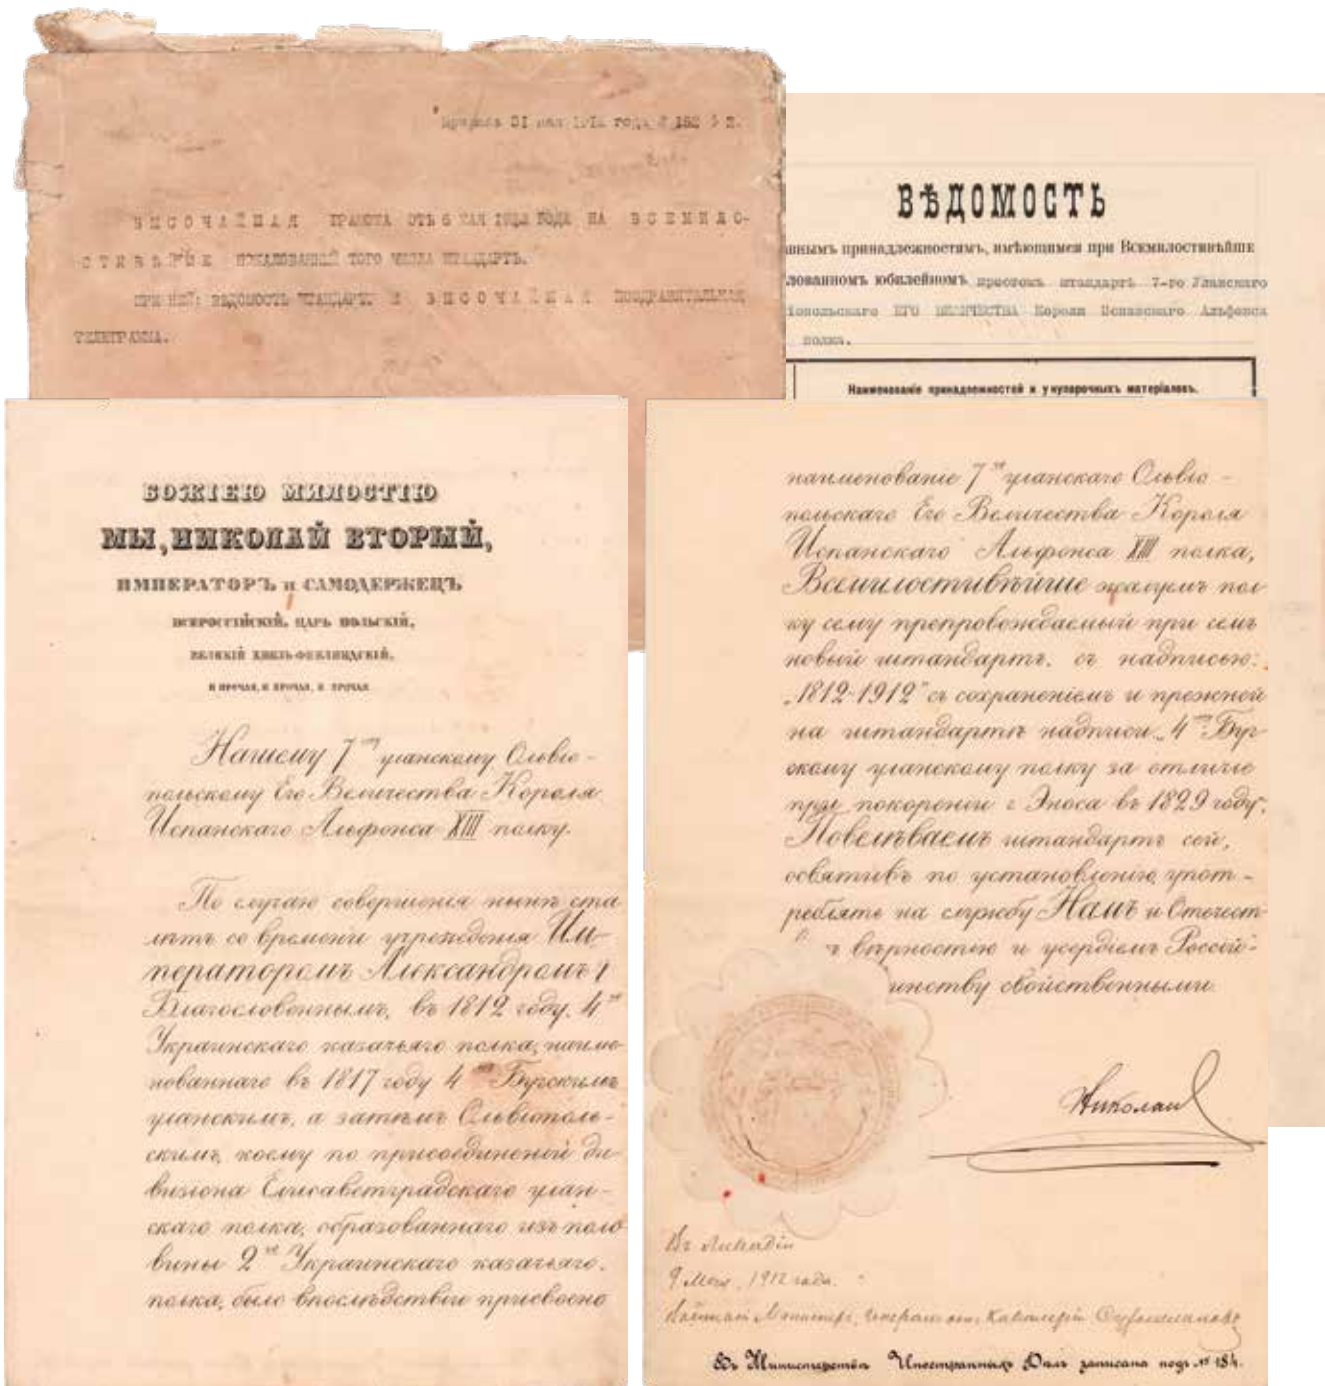 31 мая 1912 года № 152
ВЫСОЧАЙШАЯ ГРАМОТА ОТЪ 6 МАЯ 1912 ГОДА НА ВСЕМИЛО-
СТИВѢЙШЕ ПОЖАЛОВАННЫЙ ТОГО ЧИСЛА ШТАНДАРТЪ.
ПРИ НЕЙ: ВѢДОМОСТЬ ШТАНДАРТУ И ВЫСОЧАЙШАЯ ПОЗДРАВИТЕЛЬНАЯ
ТЕЛЕГРАММА.
ВѢДОМОСТЬ
аннымъ принадлежностямъ, имѣющимся при Всемилостивѣйше
лованномъ юбилейномъ простомъ штандартѣ 7-го Уланскаго
іопольскаго ЕГО ВЕЛИЧЕСТВА Короля Испанскаго Альфонса
полка.
Наименованіе принадлежностей и укупорочныхъ матеріаловъ.
БОЖІЕЮ МИЛОСТІЮ
МЫ, НИКОЛАЙ ВТОРЫЙ,
ИМПЕРАТОРЪ и САМОДЕРЖЕЦЪ
ВСЕРОССІЙСКІЙ, ЦАРЬ ПОЛЬСКІЙ,
ВЕЛИКІЙ КНЯЗЬ ФИНЛЯНДСКІЙ,
И ПРОЧАЯ, И ПРОЧАЯ, И ПРОЧАЯ
Нашему 7му уланскому Ольвіо-
польскому Его Величества Короля
Испанскаго Альфонса XIII полку.
По случаю совершенія нынѣ ста
лѣтъ со времени учрежденія Им-
ператоромъ Александромъ I
Благословеннымъ, въ 1812 году, 4го
Украинскаго казачьяго полка, наиме-
нованнаго въ 1817 году 4мъ Бугскимъ
уланскимъ, а затѣмъ Ольвіополь-
скимъ, коему по присоединеніи ди-
визіона Елисаветградскаго улан-
скаго полка, образованнаго изъ поло
вины 2го Украинскаго казачьяго
полка, было впослѣдствіи присвоено
наименованіе 7го уланскаго Ольвіо-
польскаго Его Величества Короля
Испанскаго Альфонса XIII полка,
Всемилостивѣйше жалуемъ пол-
ку сему препровождаемый при семъ
новый штандартъ, съ надписью:
„1812-1912" съ сохраненіемъ и прежней
на штандартѣ надписи „4му Буг-
скому уланскому полку за отличіе
при покореніи г. Эноса въ 1829 году".
Повелѣваемъ штандартъ сей,
освятивъ по установленію, упот-
реблять на службу Намъ и Отечест-
ъ вѣрностью и усердіемъ Россій-
инству свойственными.
Николай
Въ Ливадіи
9 Мая, 1912 года.
Военный Министръ, Генералъ отъ Кавалеріи Сухомлиновъ
Въ Министерствѣ Иностранныхъ Дѣлъ записана подъ № 184.